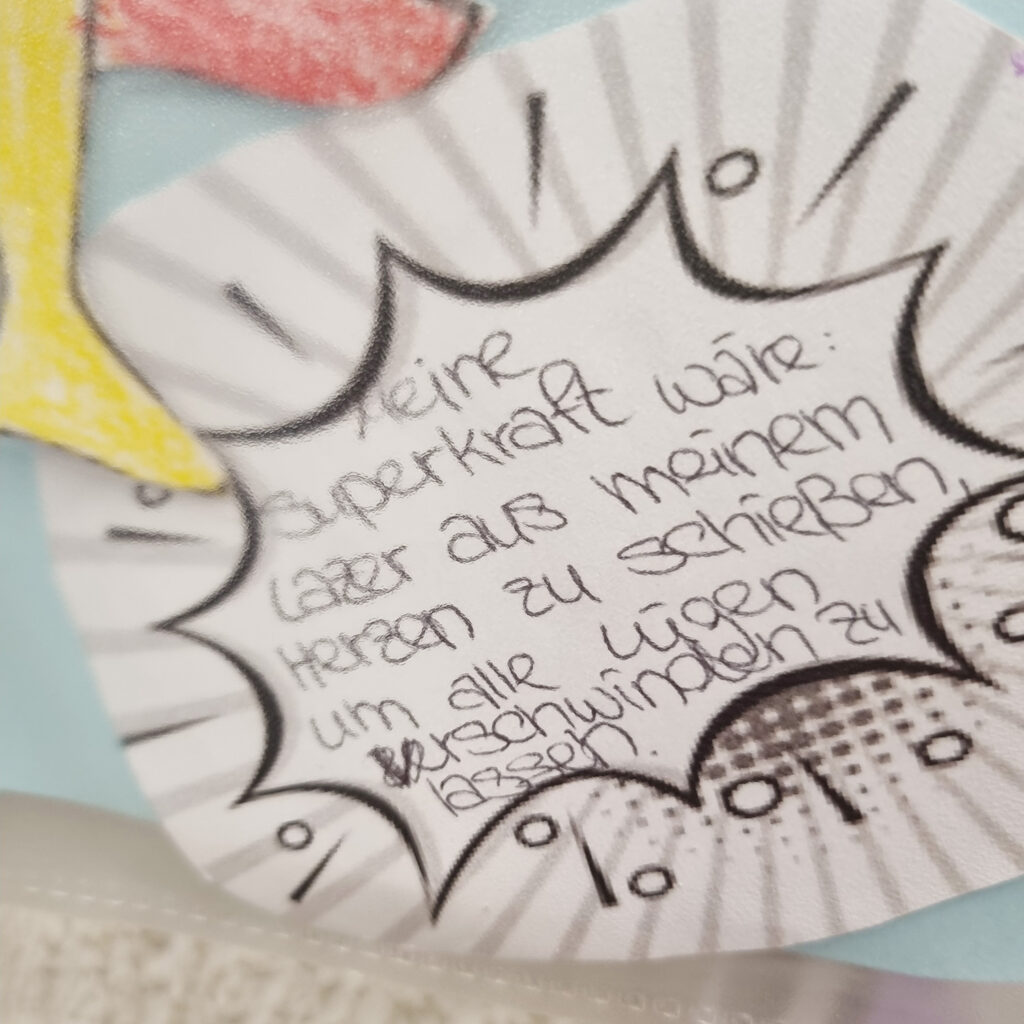 Meine
superkraft wäre:
Lazer aus meinem
Herzen zu schießen,
um alle Lügen
verschwinden zu
lassen.